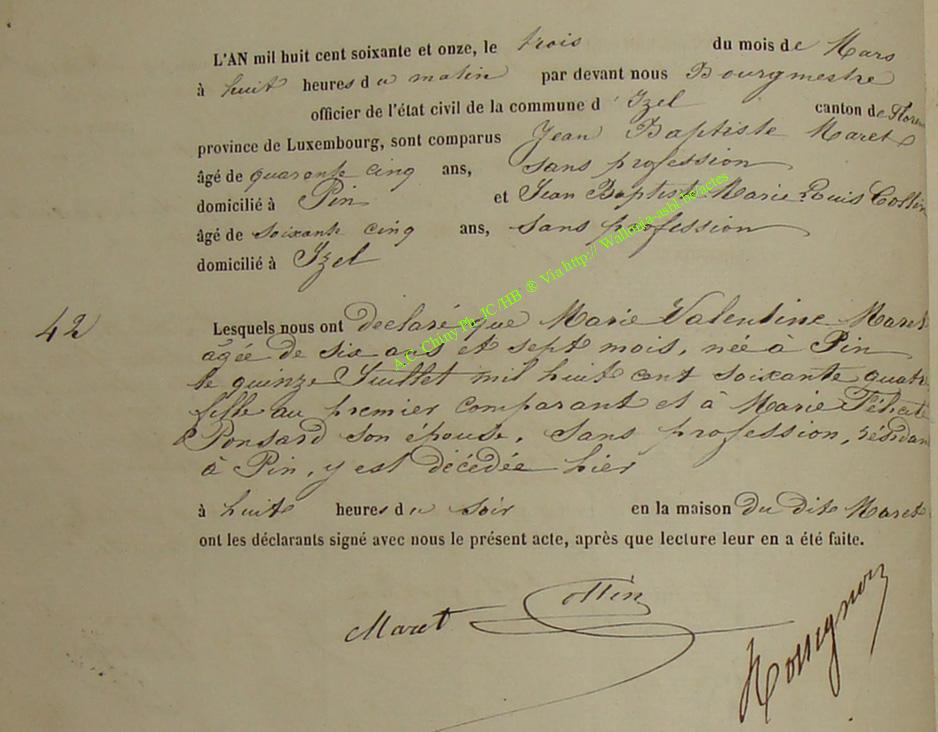 L'AN mil huit cent soixante et onze, le trois du mois de Mars
à huit heures du matin par devant nous Bourgmestre
officier de l'état civil de la commune d'Izel canton de Floren
province de Luxembourg, sont comparus Jean Baptiste Maret
âgé de quarante cinq ans, sans profession
domicilié à Pin et Jean Baptiste Marie Louis Collin
âgé de soixante cinq ans, sans profession
domicilié à Izel
42
Lesquels nous ont déclaré que Marie Valentine Maret
âgée de six ans et sept mois, née à Pin
le quinze Juillet mil huit cent soixante quatre
fille au premier comparant et à Marie Félicité
Ponsard son épouse, sans profession, résidan
à Pin, y est décédée hier
à huite heures du soir en la maison du dite Maret
ont les déclarants signé avec nous le présent acte, après que lecture leur en a été faite.
Collin
Maret
Rossignon
A.C. Chiny Ph. JC /HB ® Via http:// Wallonia-asbl.be/actes